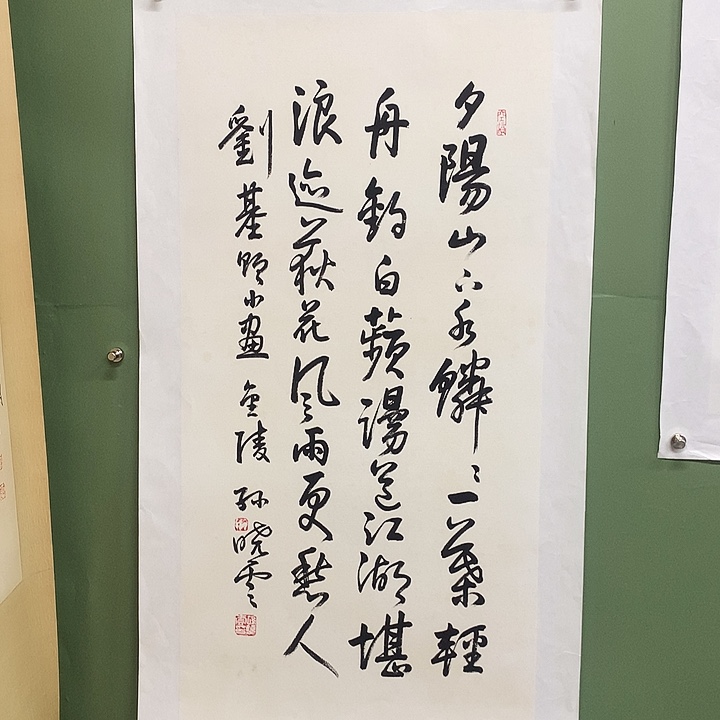 夕陽山下水鱗〻一葉輕
舟釣白蘋謾道江湖堪
浪迹荻花風雨更愁人
劉基題小畫 金陵 孫曉雲